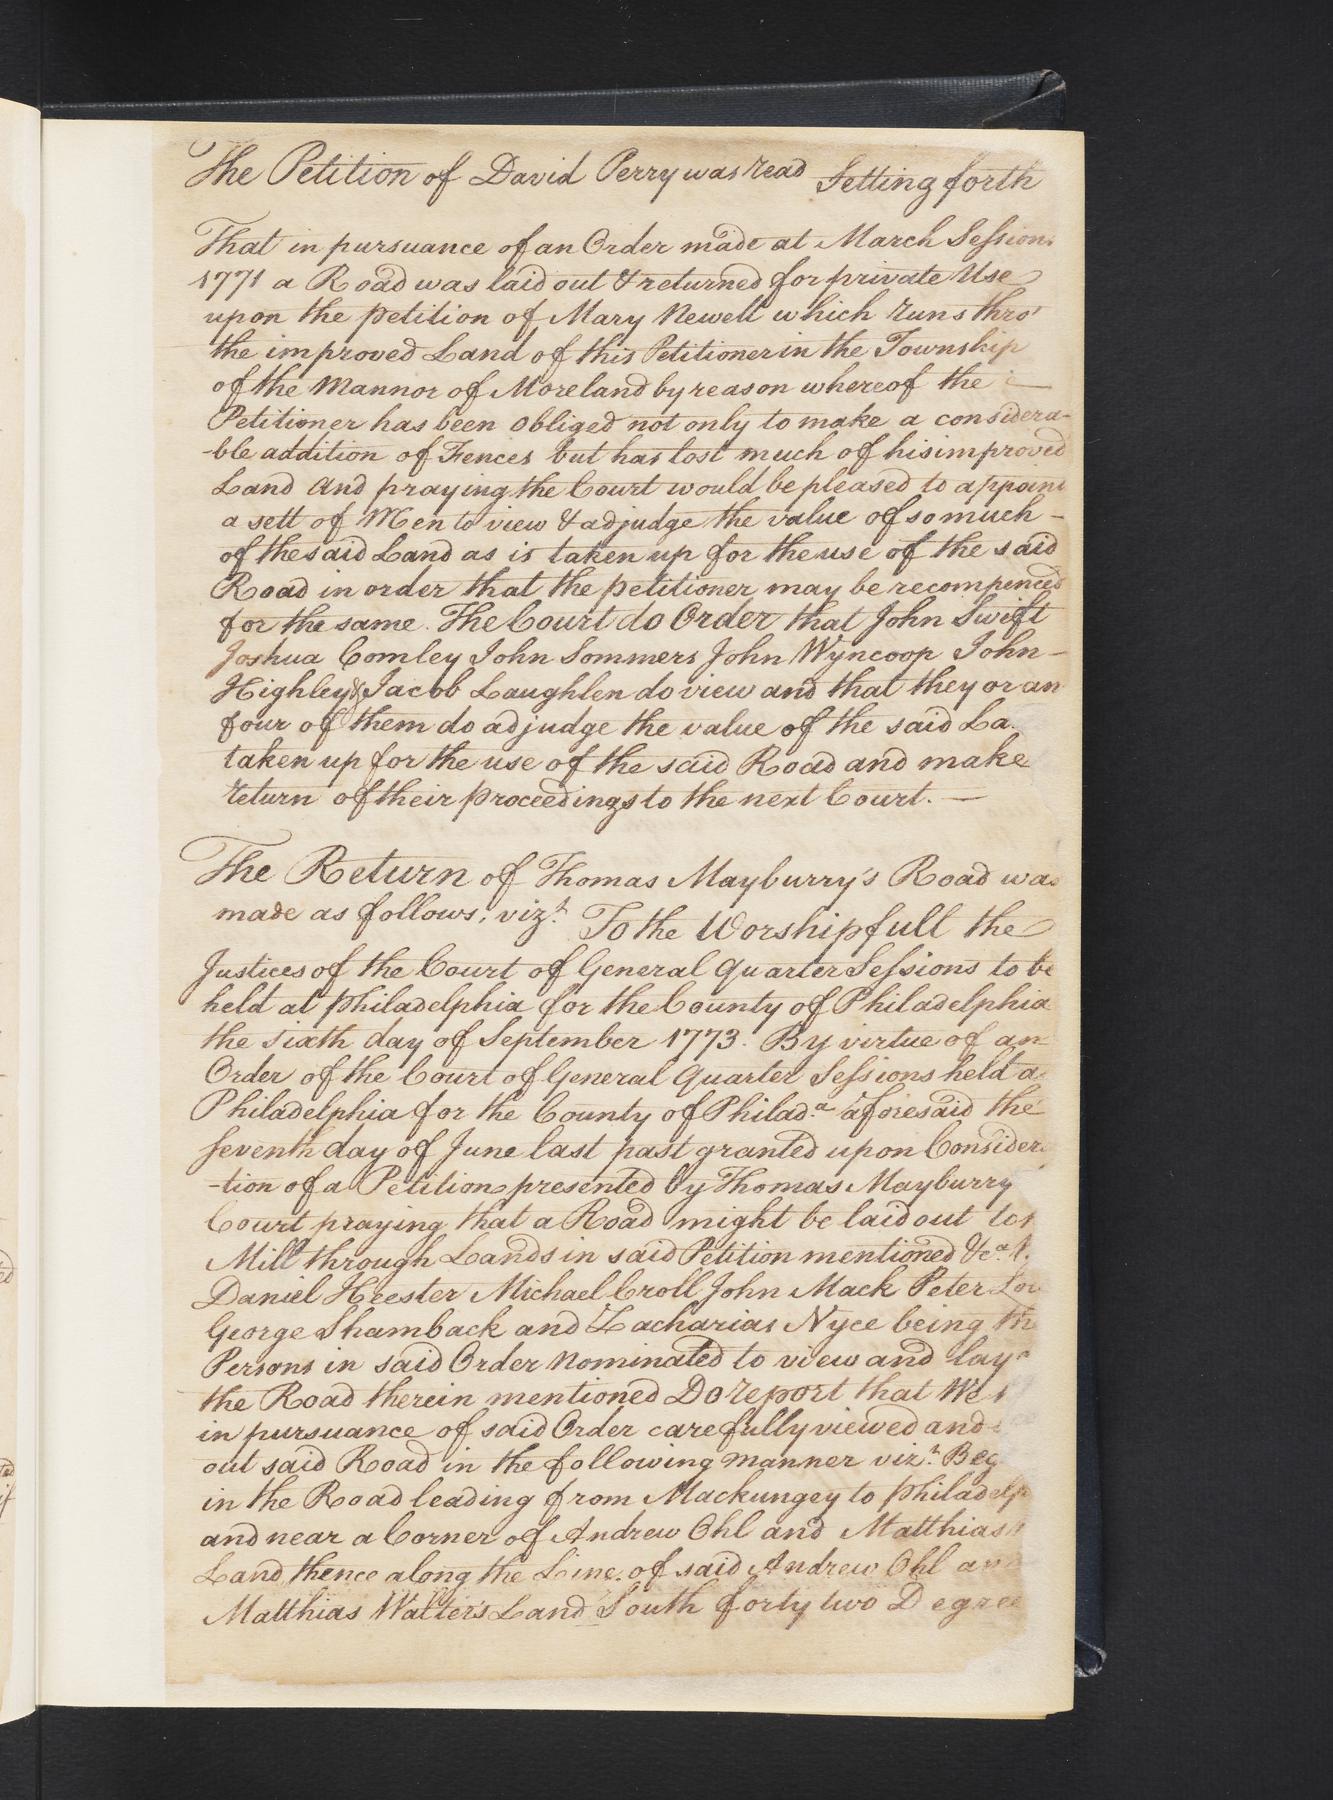 The Petition of David Perry was read Setting forth
That in pursuance of an Order made at March Sessions
1771 a Road was laid out & returned for private Use
upon the petition of Mary Newell which runs thro'
the improved Land of this Petitioner in the Township
of the Mannor of Moreland by reason whereof the
Petitioner has been obliged not only to make a considera-
-ble addition of Fences but has lost much of his improved
Land and praying the Court would be pleased to appoint
a sett of Men to view & adjudge the value of so much -
of the said Land as is taken up for the use of the said
Road in order that the petitioner may be recompenced
for the same. The Court do Order that John Swift
Joshua Comley John Sommers John Wyncoop John -
Highley & Jacob Laughlen do view and that they or an
four of them do adjudge the value of the said La
taken up for the use of the said Road and make
return of their proceedings to the next Court. —
The Return of Thomas Mayburry's Road was
made as follows; vizt. To the Worshipfull the
Justices of the Court of General Quarter Sessions to be
held at Philadelphia for the County of Philadelphia
the sixth day of September 1773. By virtue of an
Order of the Court of General Quarter Sessions held a
Philadelphia for the County of Philada. aforesaid the
seventh day of June last past granted upon Consider
-tion of a Petition presented by Thomas Mayburry
Court praying that a Road might be laid out to
Mill through Lands in said Petition mentioned &ca.
Daniel Heester Michael Croll John Mack Peter
George Shamback and Zacharias Nyce being th
Persons in said Order nominated to view and lay
the Road therein mentioned Do report that We
in pursuance of said Order carefully viewed and
out said Road in the following manner vizt. Beg
in the Road leading from Mackungey to Philadelp
and near a Corner of Andrew Ohl and Matthias
Land thence along the Line of said Andrew Ohl an
Matthias Walter's Land South forty two Degree